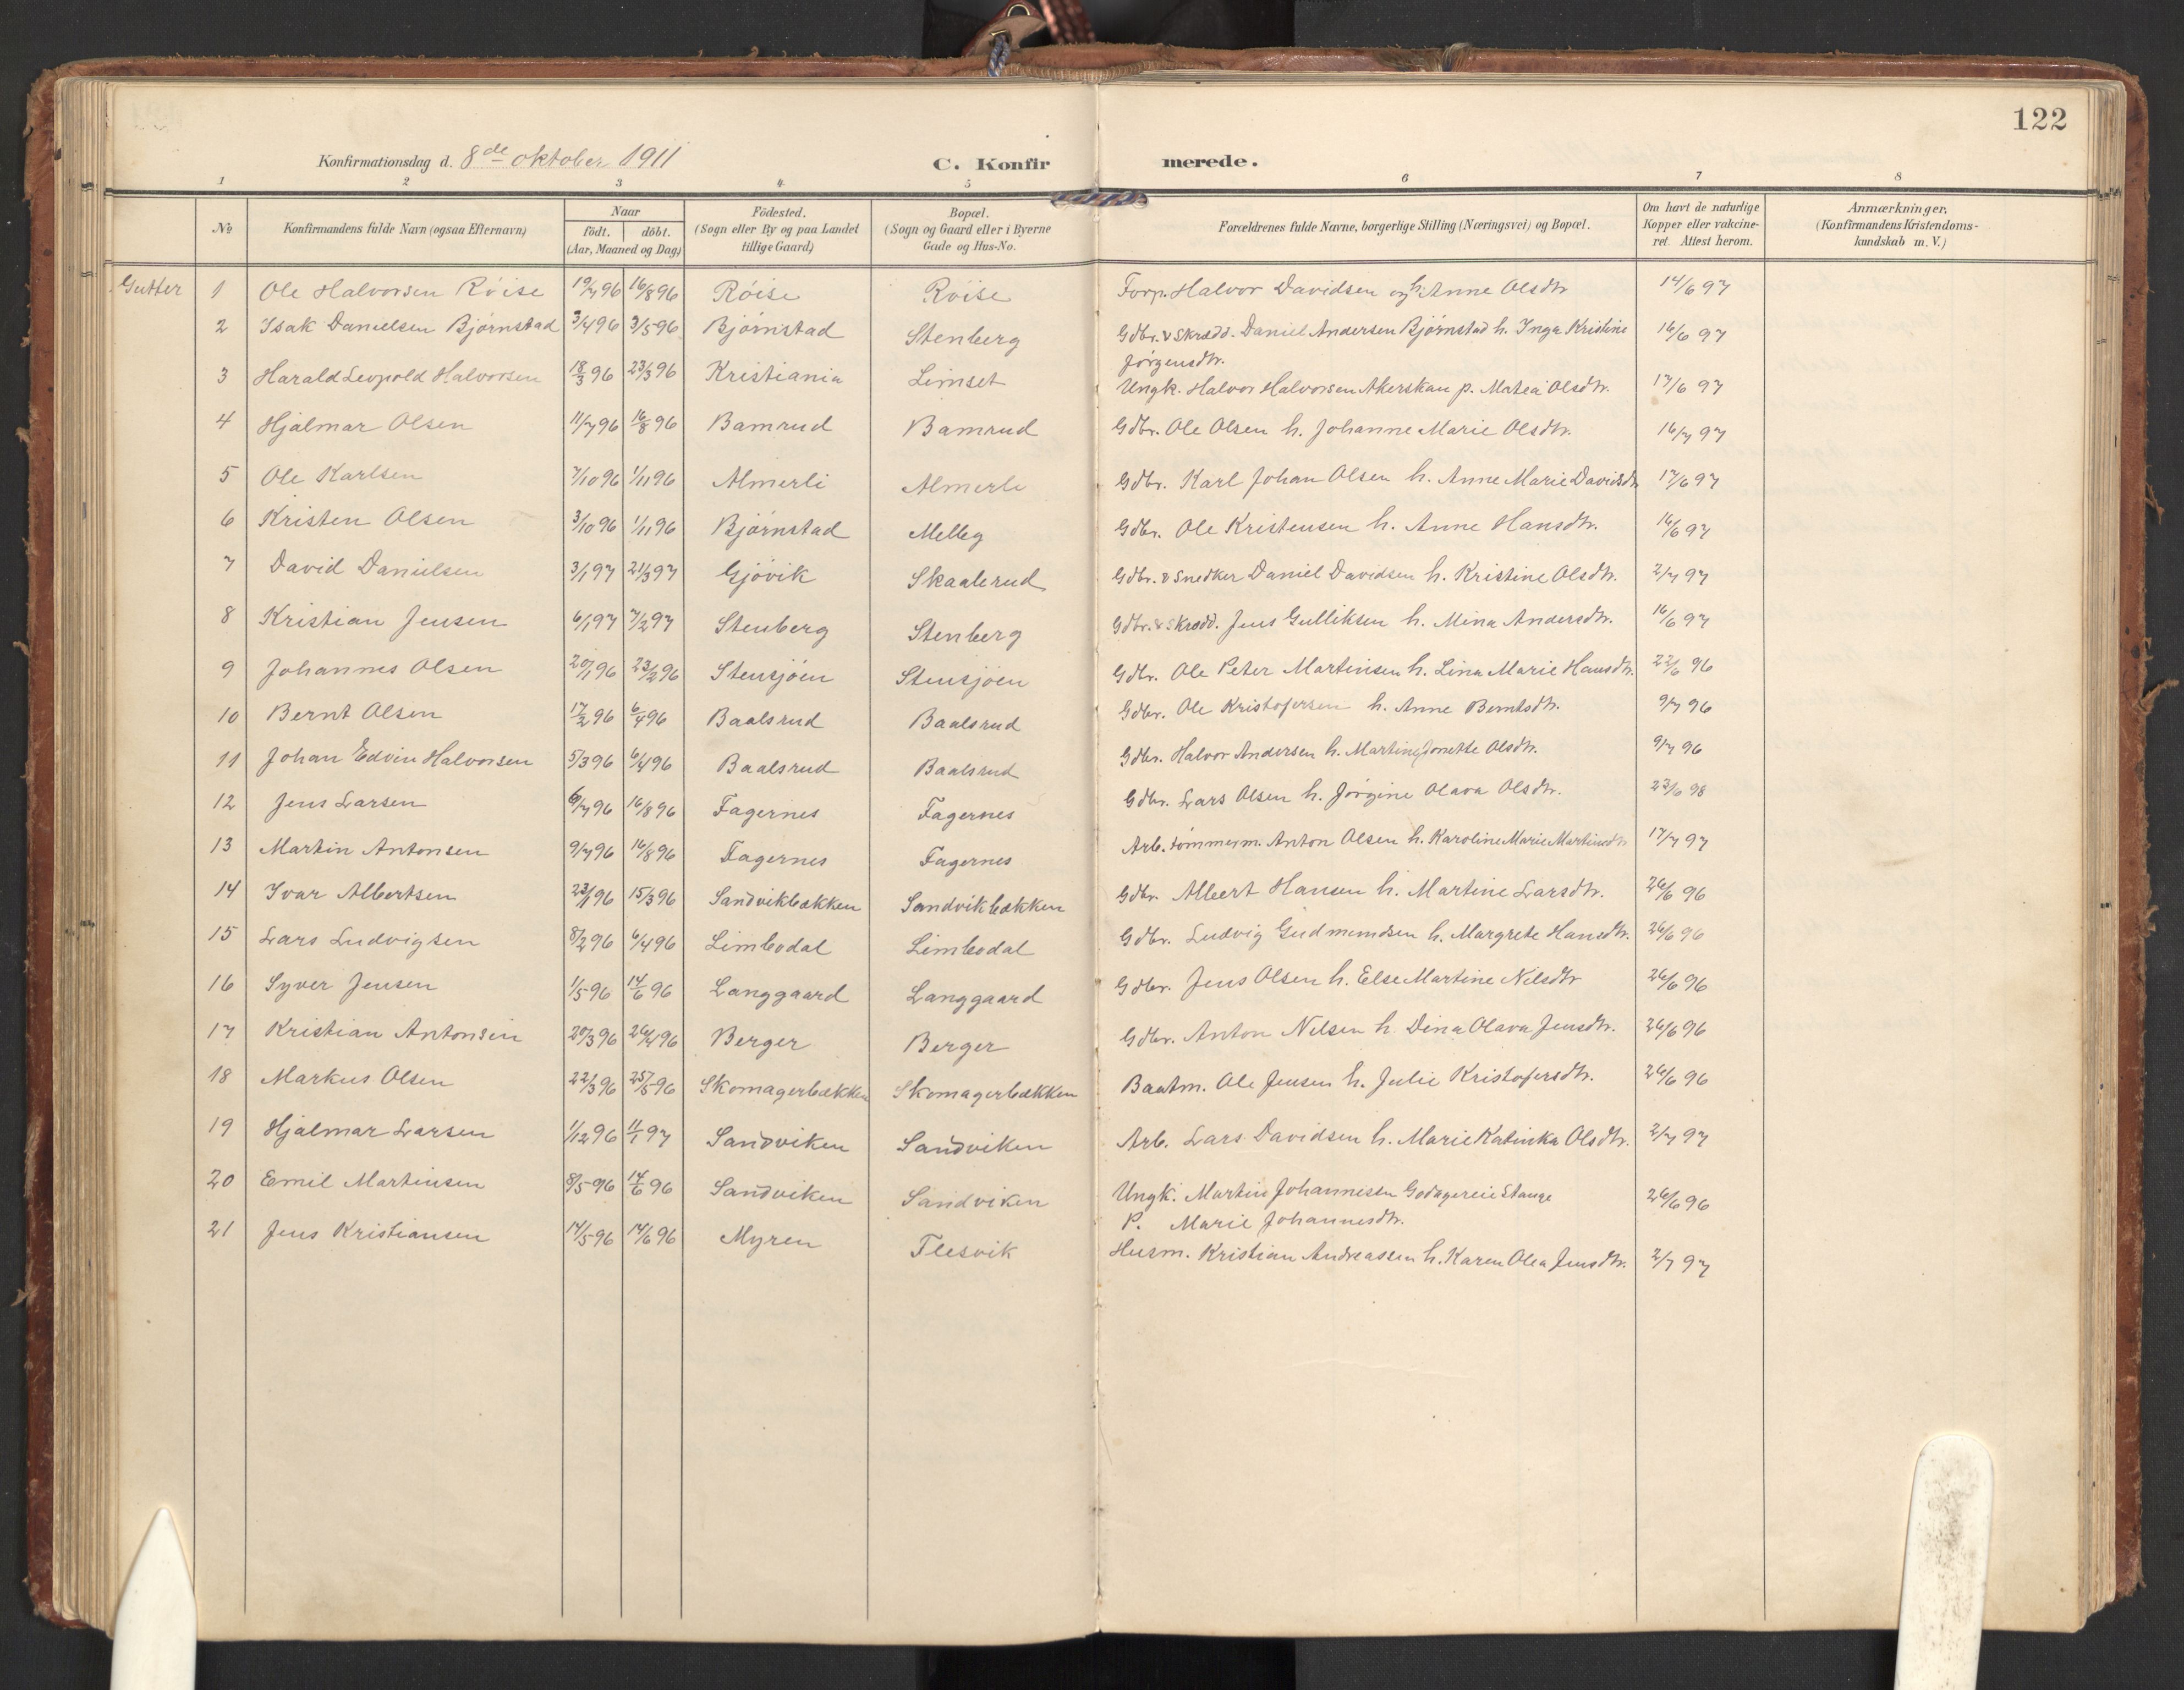 122
Konfirmationsdag d. 8de oktober 1911 C. Konfirmerede.
1 2 3 4 5 6 7 8
No Konfirmandens fulde Navn (ogsaa Efternavn) Naar født. døbt. (Aar, Maaned og Dag) Födested. (Sogn eller By og paa Landet tillige Gaard) Bopæl. (Sogn og Gaard eller i Byerne Gade og Hus-No. Forældrenes fulde Navne, borgerlige Stilling (Næringsvei) og Bopæl. Om havt de naturlige Kopper eller vakcineret. Attest herom. Anmærkninger. (Konfirmandens Kristendomskundskab m. V.)
Gutter 1 Ole Halvorsen Röise 19/7 96 16/8 96 Röise Röise Forp. Halvor Davidsen og h. Anne Olsdtr 14/6 97
2 Isak Danielsen Bjørnstad 3/4 96 3/5 96 Bjørnstad Stenberg Gdbr. & Skrædd. Daniel Andersen Bjørnstad h. Inga Kristine
Jørgensdtr. 16/6 97
3 Harald Leopold Halvorsen 18/3 96 23/3 96 Kristiania Limset Ungk. Halvor Halvorsen Akerskau p. Matea Olsdtr. 17/6 97
4 Hjalmar Olsen 11/7 96 16/8 96 Bamrud Bamrud Gdbr. Ole Olsen h. Johanne Marie Olsdtr. 16/7 97
5 Ole Karlsen 7/10 96 1/11 96 Almerli Almerli Gdbr. Karl Johan Olsen h. Anne Marie Davidsdtr 17/6 97
6 Kristen Olsen 3/10 96 1/11 96 Bjørnstad Melby Gdbr. Ole Kristensen h. Anne Hansdtr. 16/6 97
7 David Danielsen 3/1 97 21/3 97 Gjövik Skaalerud Gdbr. & Snedker Daniel Davidsen h. Kristine Olsdtr. 2/7 97
8 Kristian Jensen 6/1 97 7/2 97 Stenberg Stenberg Gdbr. & Skrædd. Jens Gulliksen h. Mina Andersdtr. 16/6 97
9 Johannes Olsen 20/1 96 23/2 96 Stensjøen Stensjøen Gdbr. Ole Peter Martinsen h. Lina Marie Hansdtr. 22/6 96
10 Bernt Olsen 17/2 96 6/4 96 Baalsrud Baalsrud Gdbr. Ole Kristofersen h. Anne Berntsdtr. 9/7 96
11 Johan Edvin Halvorsen 5/3 96 6/4 96 Baalsrud Baalsrud Gdbr. Halvor Andersen h. Martine Jonette Olsdtr. 9/7 96
12 Jens Larsen 6/7 96 16/8 96 Fagernes Fagernes Gdbr. Lars Olsen h. Jørgine Olava Olsdtr. 23/6 98
13 Martin Antonsen 9/7 96 16/8 96 Fagernes Fagernes Arb. tømmerm. Anton Olsen h. Karoline Marie Martinsdtr 17/7 97
14 Ivar Albertsen 23/1 96 15/3 96 Sandvikbækken Sandvikbækken Gdbr. Albert Hansen h. Martine Larsdtr. 26/6 96
15 Lars Ludvigsen 8/2 96 6/4 96 Limbodal Limbodal Gdbr. Ludvig Gudmundsen h. Margrete Hansdtr. 26/6 96
16 Syver Jensen 1/5 96 14/6 96 Langgaard Langgaard Gdbr. Jens Olsen h. Else Martine Nilsdtr 26/6 96
17 Kristian Antonsen 20/3 96 26/4 96 Berger Berger Gdbr. Anton Nilsen h. Dina Olava Jensdtr. 26/6 96
18 Markus Olsen 22/3 96 25/5 96 Skomagerbækken Skomagerbækken Baatm. Ole Jensen h. Julie Kristofersdtr. 26/6 96
19 Hjalmar Larsen 1/12 96 11/1 97 Sandviken Sandviken Arb. Lars Davidsen h. Marie Katinka Olsdtr. 2/7 97
20 Emil Martinsen 8/5 96 14/6 96 Sandviken Sandviken Ungk. Martin Johannesen Stange
P. Marie Johannesdtr. 26/6 96
21 Jens Kristiansen 14/5 96 14/6 96 Myren Flesvik Husm. Kristian Andreassen h. Karen Olea Jensdtr. 2/7 97